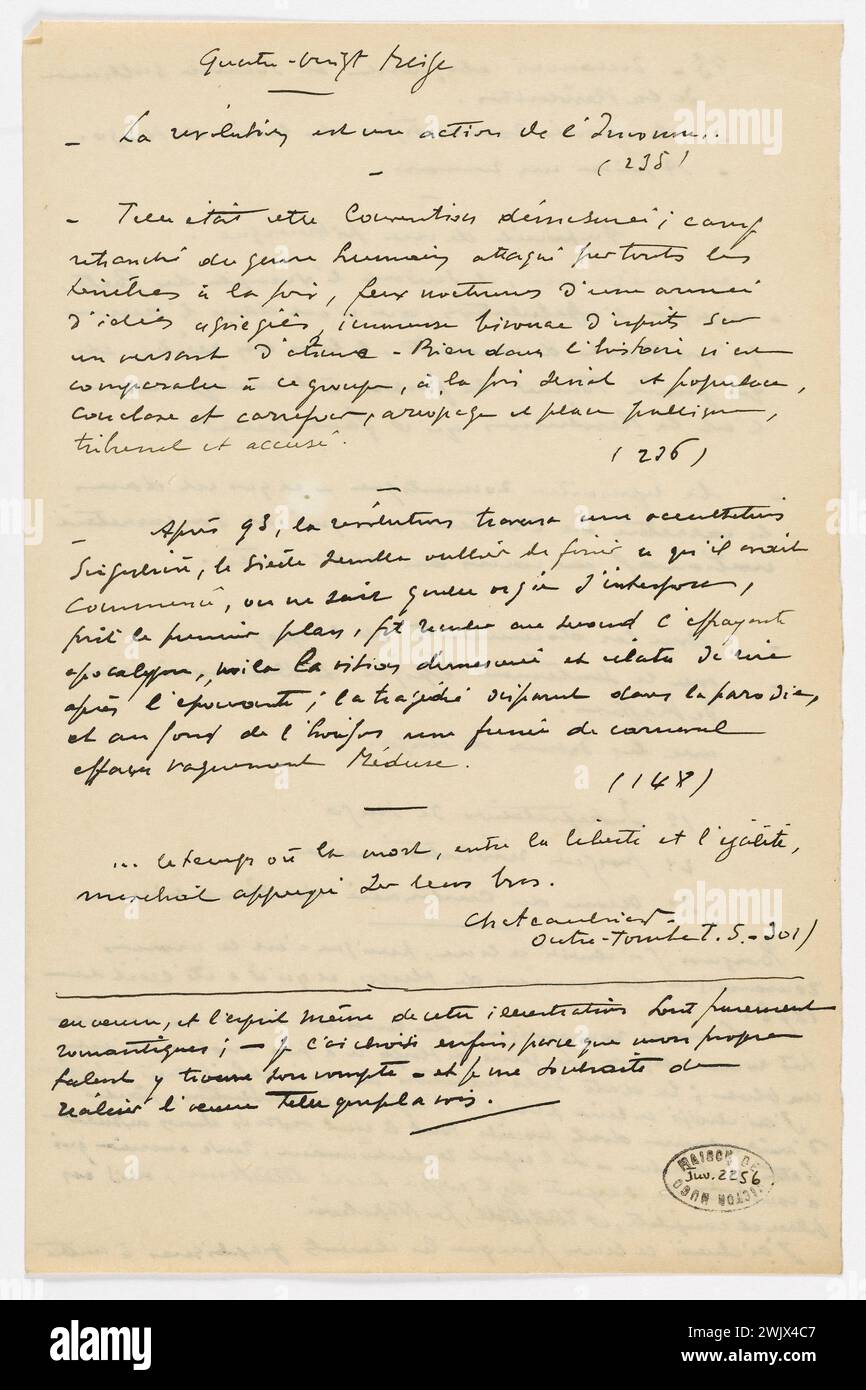 Quatre-vingt treize
- La révolution est une action de l'Inconnu..
(235)
- Telle était cette Convention démesurée ; camp
retranché du genre humain attaqué par toutes les
ténèbres à la fois, feux nocturnes d'une armée
d'idées assiégées, immense bivouac d'esprits sur
un versant d'abime - Rien dans l'histoire n'est
comparable à ce groupe, à la fois sénat et populace,
conclave et carrefour, aréopage et place publique,
tribunal et accusé.
(236)
- Après 93, la révolution traversa une occultation
singulière, le siècle sembla oublier de finir ce qu'il avait
commencé, on ne sait quelle orgie s'interposa,
prit le premier plan, fit reculer au second l'effrayante
apocalypse, voila la vision démesurée et éclata de rire
après l'épouvante ; la tragédie disparut dans la parodie,
et au fond de l'horizon une fumée de carnaval
effaça vaguement Méduse.
(148)
... le temps où la mort, entre la liberté et l'égalité,
marchait appuyée sur leurs bras.
Chateaubriand
Outre-Tombe T. 5. - 301)
et l'esprit même de cette illustration sont purement
romantiques ; - je l'ai choisi enfin, parce que mon propre
talent y trouve son compte - et je me souhaite de
réaliser l'œuvre telle que je la vois.
MAISON DE VICTOR HUGO
Inv. 2256
alamy
alamy
alamy
Image ID: 2WJX4C7
www.alamy.com